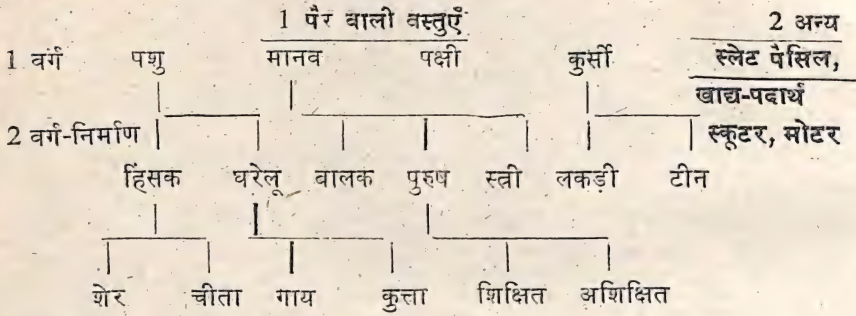 1 पैर वाली वस्तुएँ 2 अन्य
1 वर्ग पशु मानव पक्षी कुर्सी स्लेट पैंसिल,
खाद्य-पदार्थ
2 वर्ग-निर्माण स्कूटर, मोटर
हिंसक घरेलू बालक पुरुष स्त्री लकड़ी टीन
शेर चीता गाय कुत्ता शिक्षित अशिक्षित